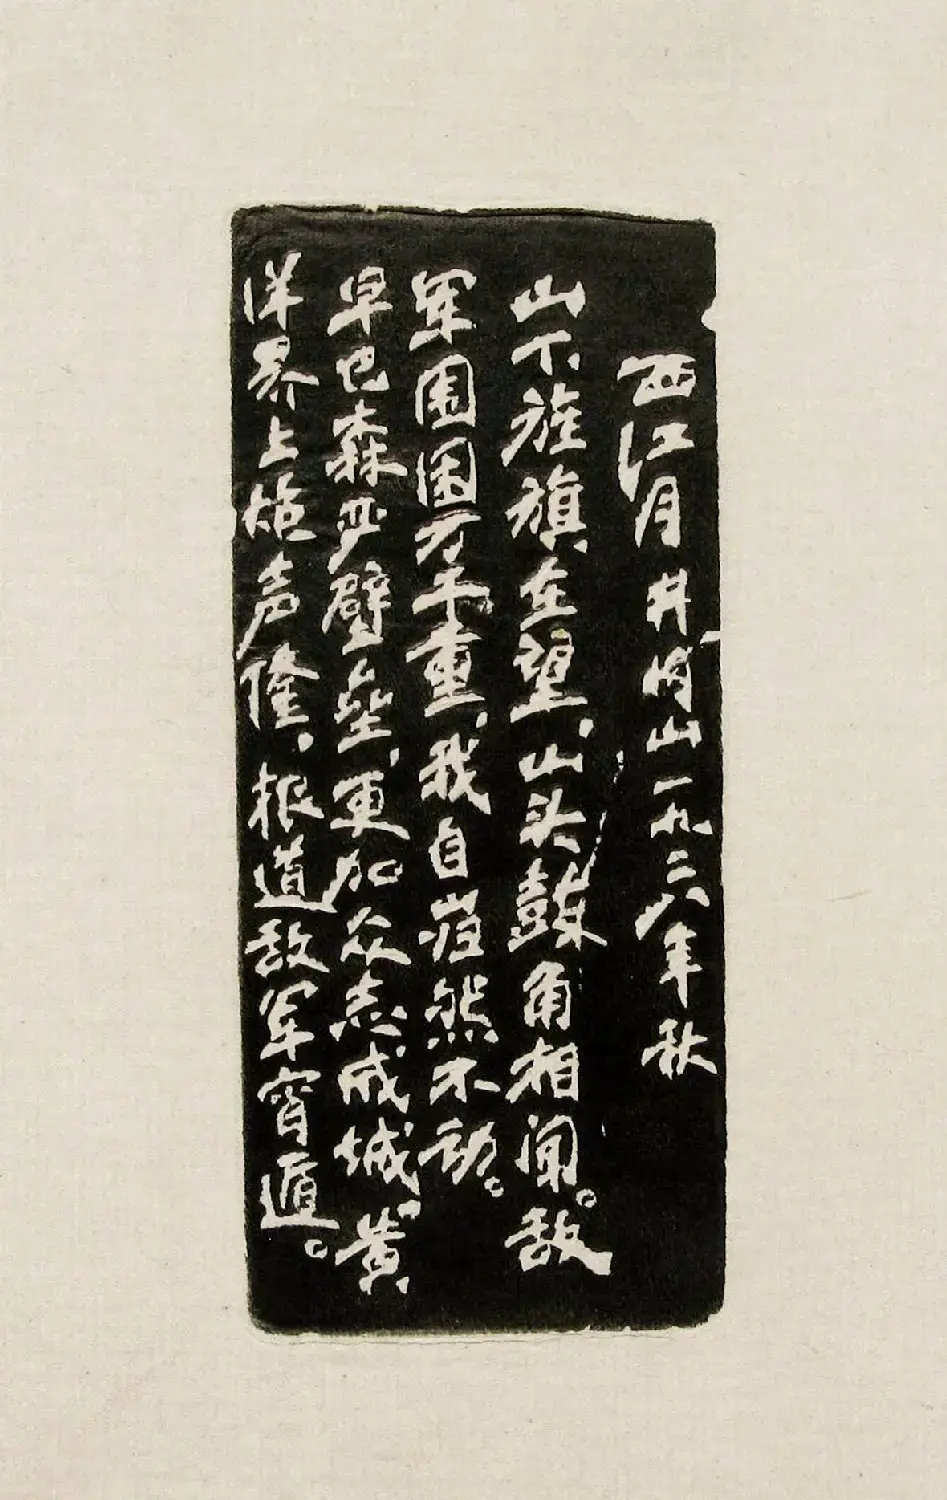 西江月 井岡山 一九二八年秋
山下旌旗在望,山头鼓角相闻。敌
军围困万千重,我自岿然不动。
早已森严壁垒,更加众志成城。黄
洋界上炮声隆,报道敌军宵遁。